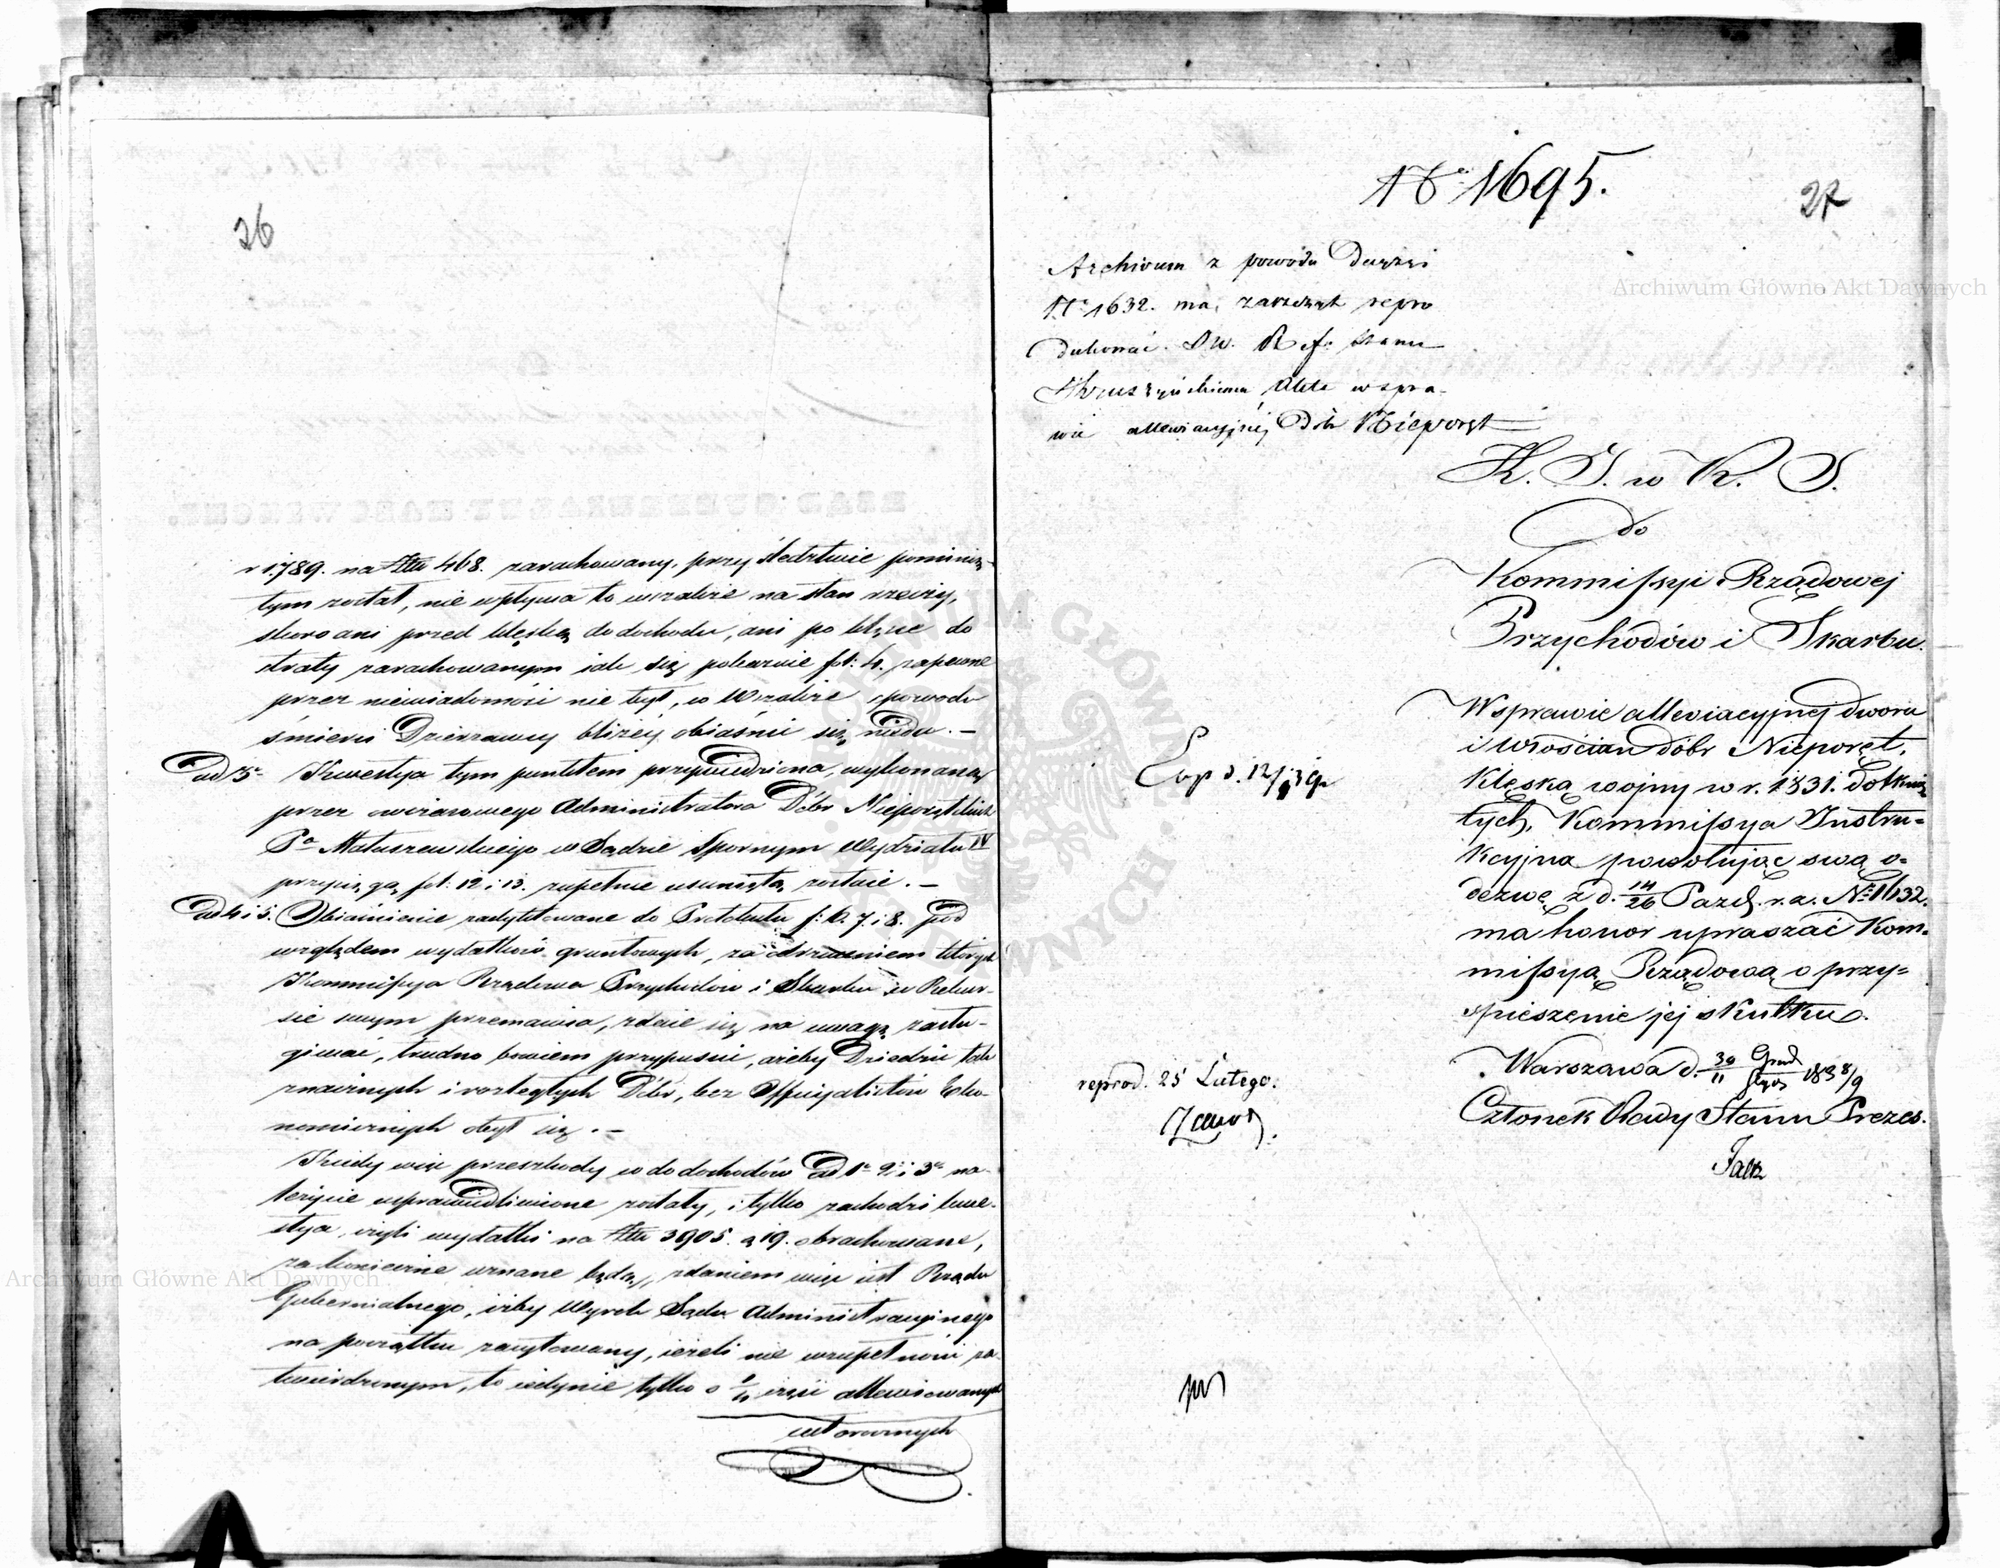 26
r 1789. na Złtu 468. zarachowany, przy śledztwie pominię-
tym został, nie wpływa to wszakże na stan rzeczy,
skoro ani przed klęską do dochodu, ani po klęsce do
straty zarachowanym jak się pokazuie fol: 4. zapewne
przez niewiadomość nie był, w Wszakże z powodu
śmierci Dzierzawcy bliżéy obiaśnić się nieda. —
ad 3o Kwestya tym punktem przywiedziona, wykonaną
przez owczasowego Administratora Dóbr Nieporętskich
Po Matuszewskiego w Sądzie Spornym Wydziału IV
przysięgą fol. 12 i 13. zupełnie usuniętą zostaie. —
ad 4 i 5. Obiaśnienie zadyktowane do Protokułu f: 6. 7. i 8. pod
względem wydatków gruntowych, za odrzuceniem których
Kommissya Rządowa Przychodów i Skarbu w Rekur-
sie swym przemawia, zdaie się na uwagę zasłu-
giwać, trudno bowiem przypuścić, ażeby Dziedzic tak
znacznych i rozległych Dóbr, bez Officyalistów Eko-
nomicznych obył się. —
Kiedy więc przeszkody w do dochodów ad 1o 2o i 3o na-
leżycie usprawiedliwione zostały, i tylko zachodzi kwe-
stya, czyli wydatki na Złtu 3905. g 19. obrachowane,
za konieczne uznane będą, zdaniem więc iest Rządu
Gubernialnego, iżby Wyrok Sądu Administracyinego
na początku zacytowany, ieżeli nie w zupełności za-
twierdzonym, to iedynie tylko o części allewiowanych
wytoczonych
No 1695.
27
Archivum z powodu Decyzyi
No 1632. ma, zarzecznik repro
dukować JW. Ref. Stanu
Akta w spra-
wie allewiacyjnéj Dóbr Nieporęt
K. I. w K. P.
do
Kommissyi Rządowej
Przychodów i Skarbu.
W sprawie alleviacyjnej dworu
i włościan dóbr Nieporęt,
Klęską wojny w r. 1831. dotknię
tych, Kommissya Instru-
kcyjna powołując swą o-
dezwę z d. 14/26 Pazd. r. z. No 1632.
ma honor upraszać Kom-
missyą Rządową o przy-
spieszenie jej skutku.
Warszawa d. 30/11 Grud/Stycz 1838/9
Członek Rady Stanu Prezes.
Exp d. 12/1 39r
reprod. 25 Lutego.